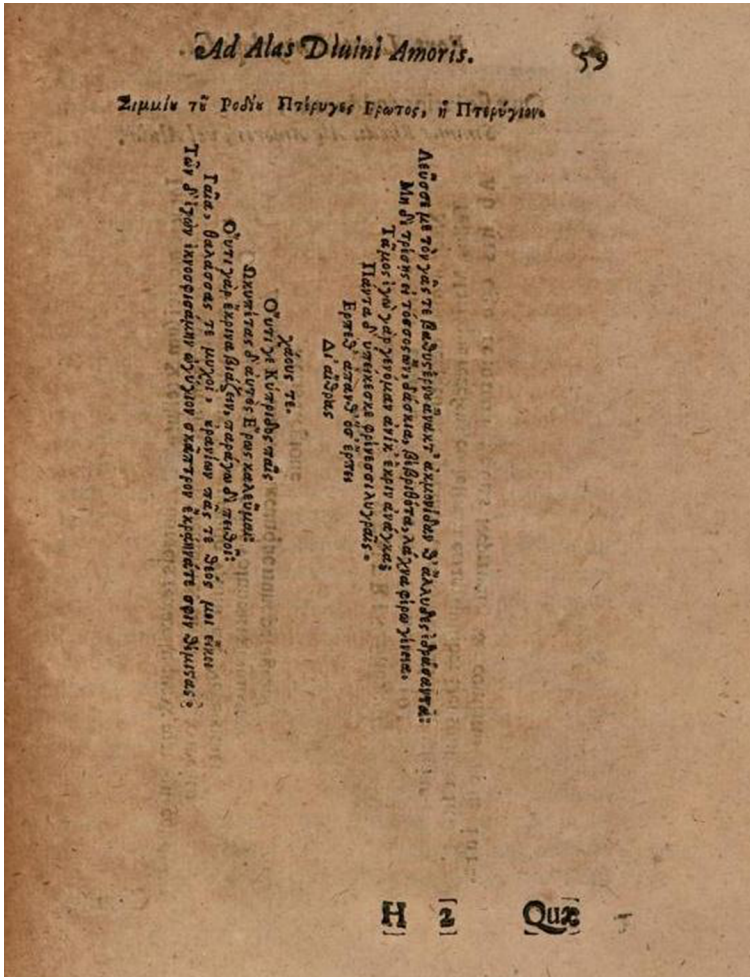 Ad Alas Diuini Amoris.
59
Σιμμίου τοῦ Ροδίου Πτέρυγες Ερωτος, ἢ Πτερύγιον.
Λεῦσσε με τὸν γᾶς τε βαθυστέρνου ἄνακτ' ἀκμονίδαν θ' ἄλλυδις ἑδράσαντα:
Μὴ δὲ τρέσῃς εἰ τόσσος ὢν, δάσκια, βεβριθότα, λάχνα φέρω γένεια.
Τᾶμος ἐγὼ γὰρ γενόμαν ἀνίκ' ἔκριν' ἀνάγκα:
Πάντα δ' ὑπείκεσκε φρίνεσσι λυγραῖς.
Ερπεθ' ἅπανθ' ὅσ' ἕρπει
Δι' αἴθρας
χάους τε.
Οὔτι γε Κύπριδος παῖς
Ωκυπέτας δ' αὐτὸς Ερως καλεῦμαι:
Οὔτι γὰρ ἔκρινα βιάζειν, παράγω δὲ πειθοῖ:
Γαῖα, θαλάσσας τε μυχοὶ, οὐρανίων πᾶς τε θεός μοι εἴκει
Τῶν δ' ἐγὼν ἐκνοσφισάμην ὠγύγιον σκᾶπτρον ἔκραινά τε σφιν θέμιτας.
H 2
Quæ